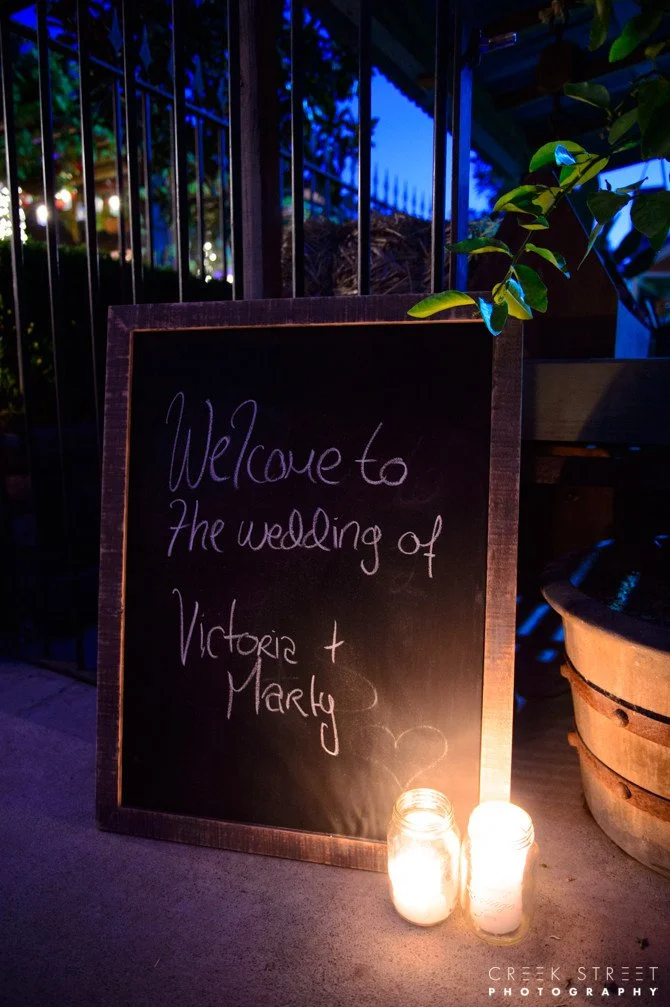 Welcome to
the wedding of
Victoria +
Marty
CREEK STREET
PHOTOGRAPHY